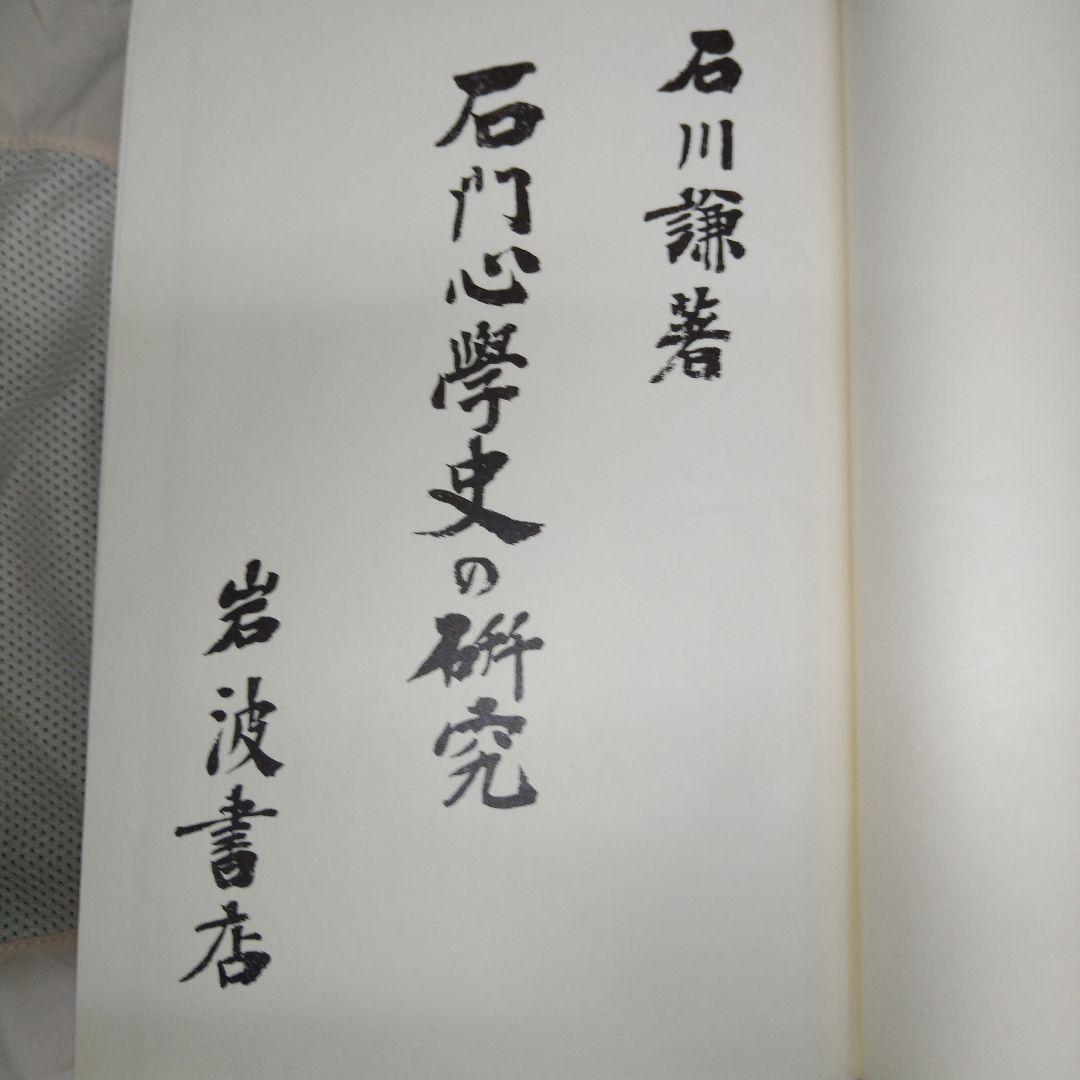 石川謙著
石門心學史の研究
岩波書店